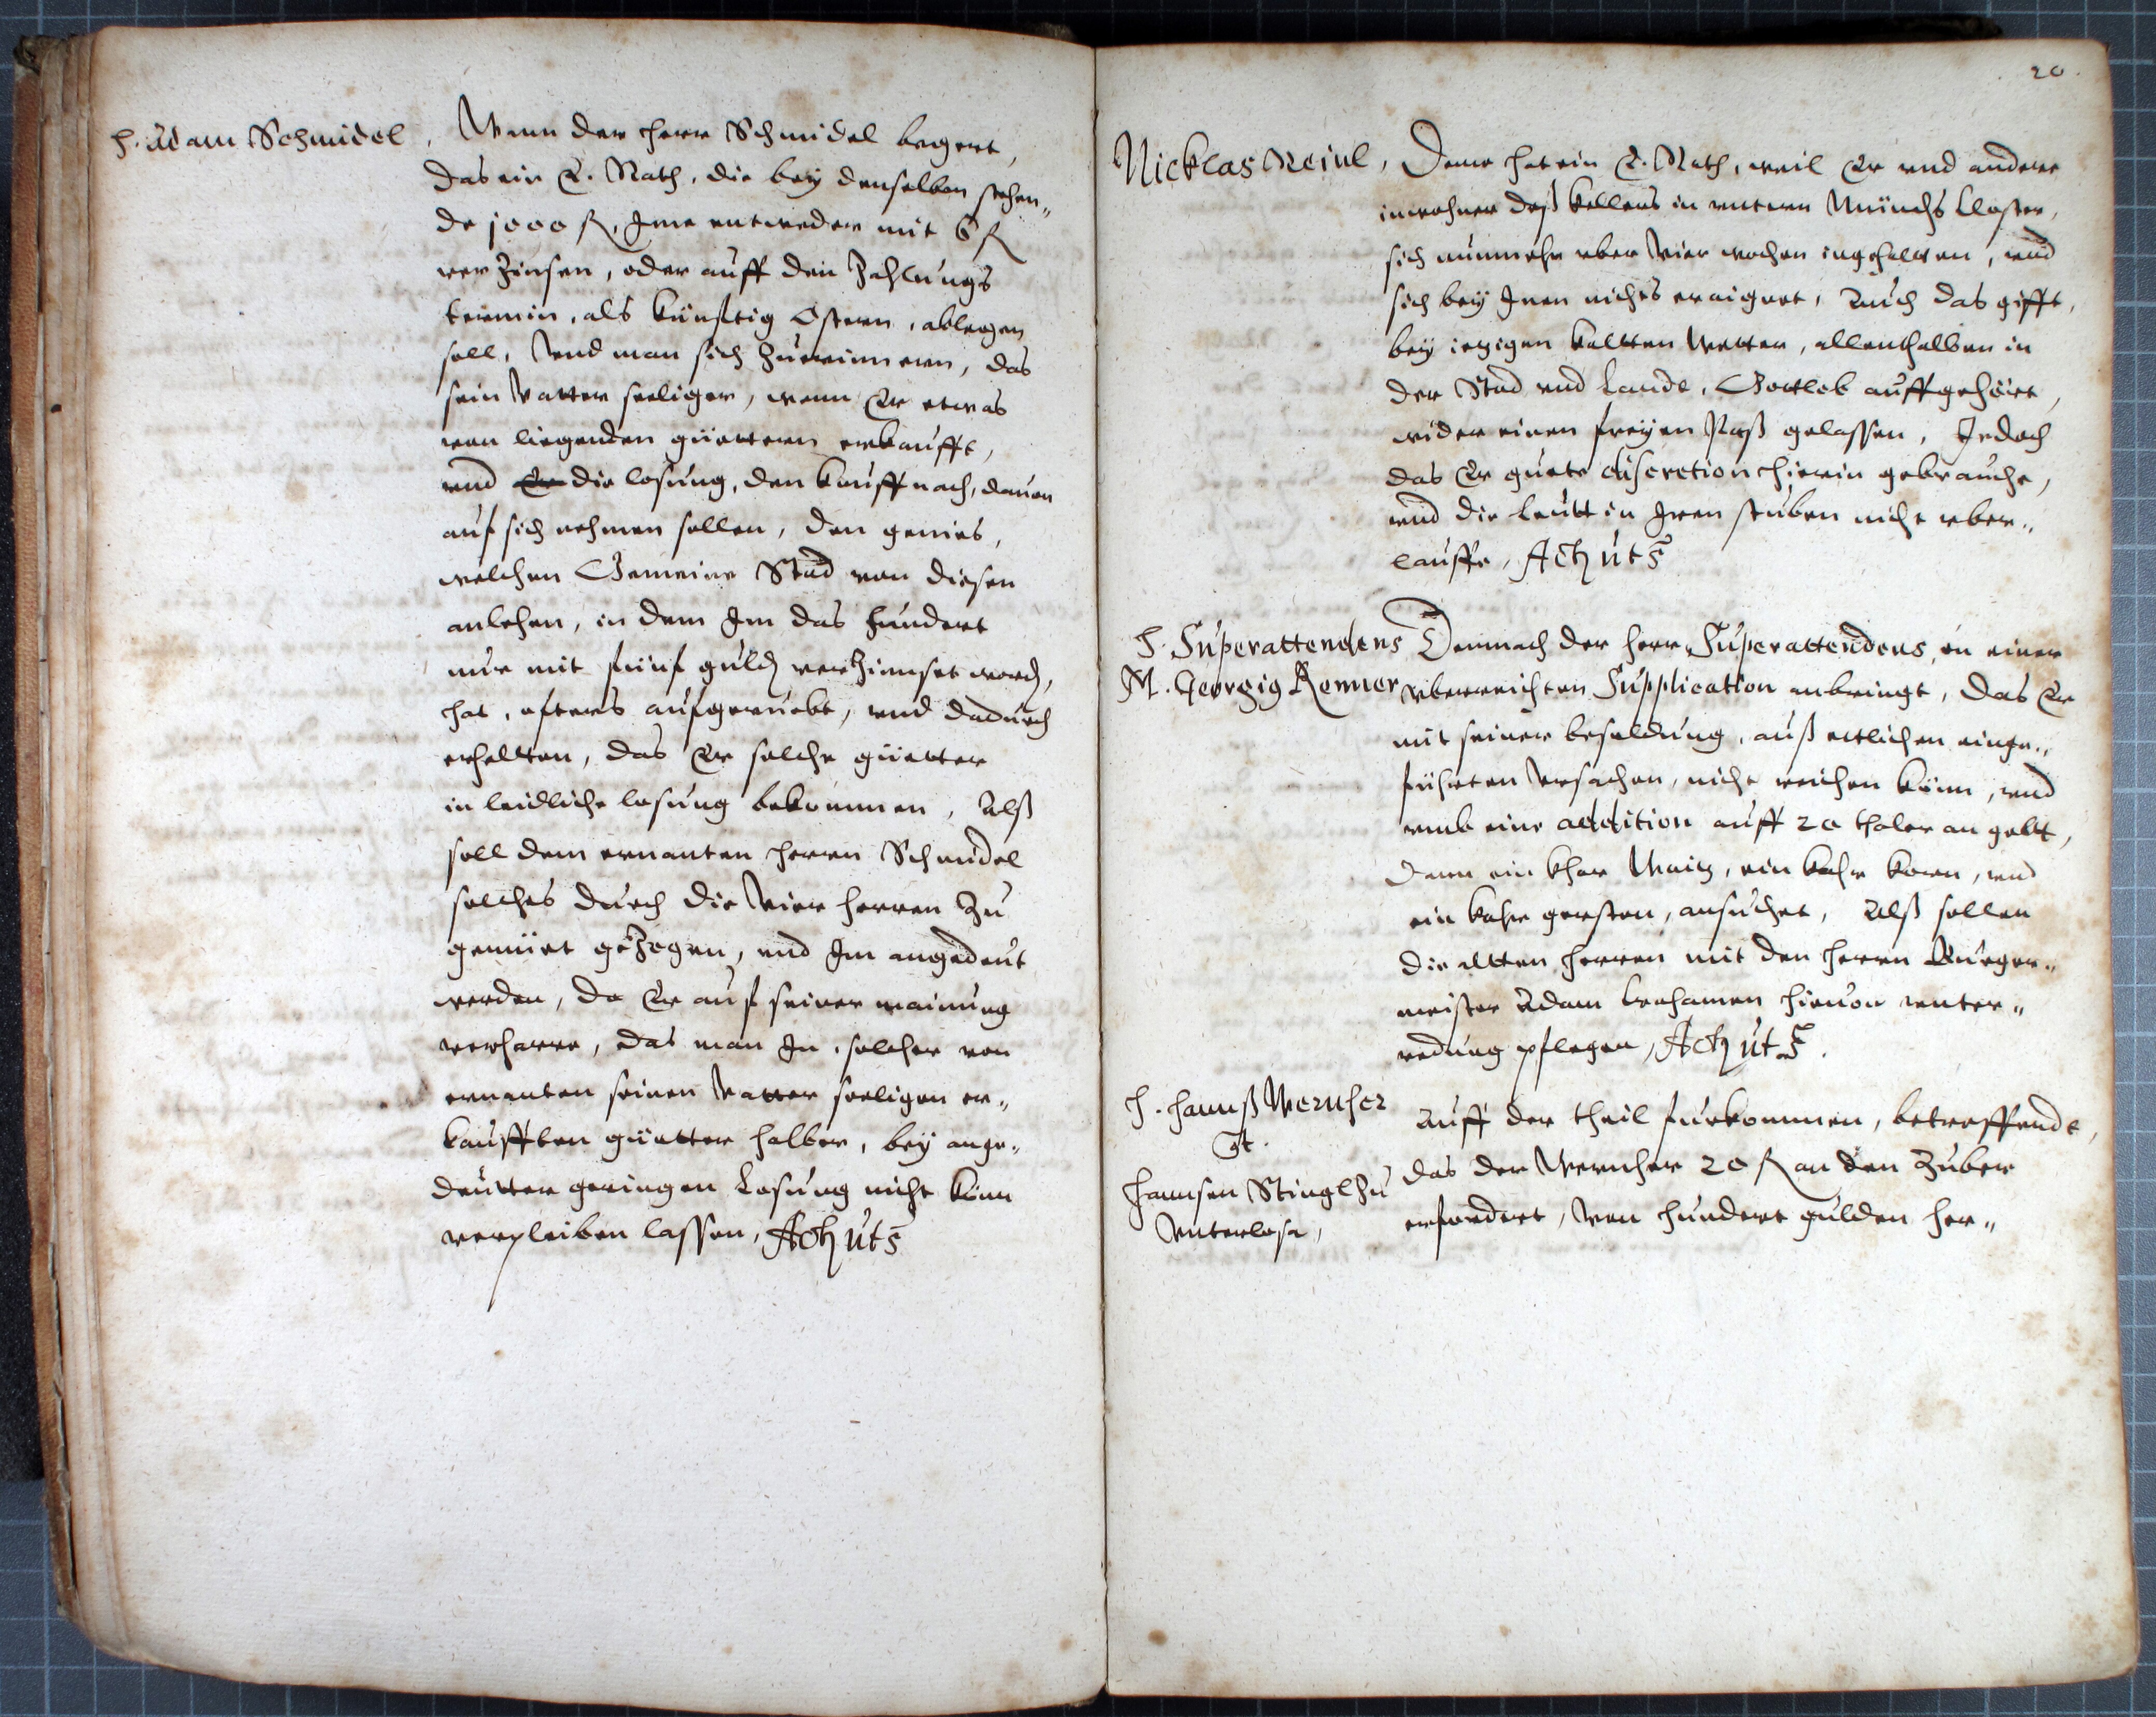 H. Adam Schmidel
Wenn der Herr Schmidel begert,
das ein E. Rath, die bey denselben stehen„
de 1000 fl, Ime entweder mit 6 fl
verzinsen, oder auff den Zahlungs
termin, als künfftig Ostern, ablegen
soll, Vnd man sich zuerinnern, das
sein Vatter seeliger, wenn Er etwas
von liegenden güettern erkaufft,
vnd Er die losung, den kauff nach, dauon
auf sich nehmen sollen, den genies,
welchen Gemeine Stad von diesen
anlehen, in dem Im das hundert
nur mit fünf guld verzinnset word,
hat, offters aufgeruckt, vnd dadurch
erhallten, das Er solche güetter
in leidliche losung bekommen, Alß
soll dem ernanten Herrn Schmidel
solches durch die Vier herren zu
gemüet gezogen, vnd Im angedeut
werden, da Er auf seiner mainung
verharre, das man In, solcher von
ernanten seinen Vatter seeligen er„
kaufften güetter halber, bey ange„
deutter geringen Losung nicht könn
verpleiben lassen, Act ut s
20.
Nicklas Meinl,
Deme hat ein E. Rath, weil Er vnd andere
inwohner deß kellers in vntern Münchs Closter,
sich nunmehr vber Vier wochen ingehallten, vnd
sich bey Inen nichts eraignet, Auch das gifft,
bey ietzigen kalten Wetter, allenthalben in
der Stad vnd Lande, Gottlob auffgehöret,
wider einen freyen Paß gelassen, Jedoch
das Er guete discretion hierin gebrauche,
vnd die leutt in Iren stuben nicht vber„
lauffe, Act ut s
H. Superattendens
M. Georgig Renner
Demnach der herr Superattendens, in einer
vberreichten Supplication anbringt, das Er
mit seiner besoldung, auß ettlichen einge„
führten Vrsachen, nicht reichen könn, vnd
vmb eine addition auff 20 thaler an gellt,
dann ein khar Waitz, ein kahr korn, vnd
ein kahr gersten, ansuchet, Alß sollen
die alten herren mit den herrn Burger„
meister Adam hieuon vnter„
redung pflegen, Act ut s.
H. Hannß Wernher
Ct.
Hannsen Stingl zu
Vnterlosa,
Auff der theil furkommen, betreffende,
das der Wernher 20 fl an den Zuber
erfordert, Von hundert gulden her„